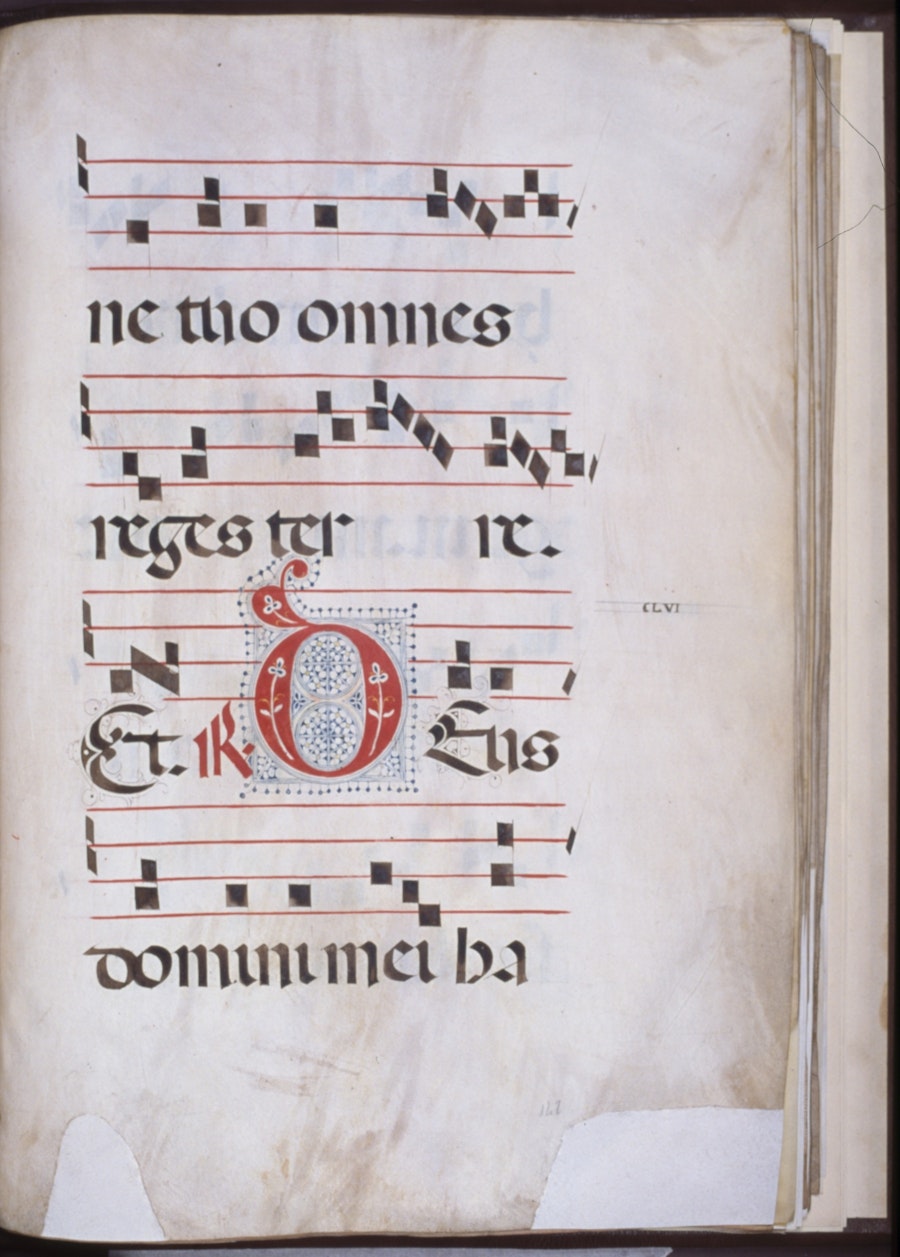 ne tuo omnes
reges ter re.
Et. R. DEus
CLVI
domini mei ba